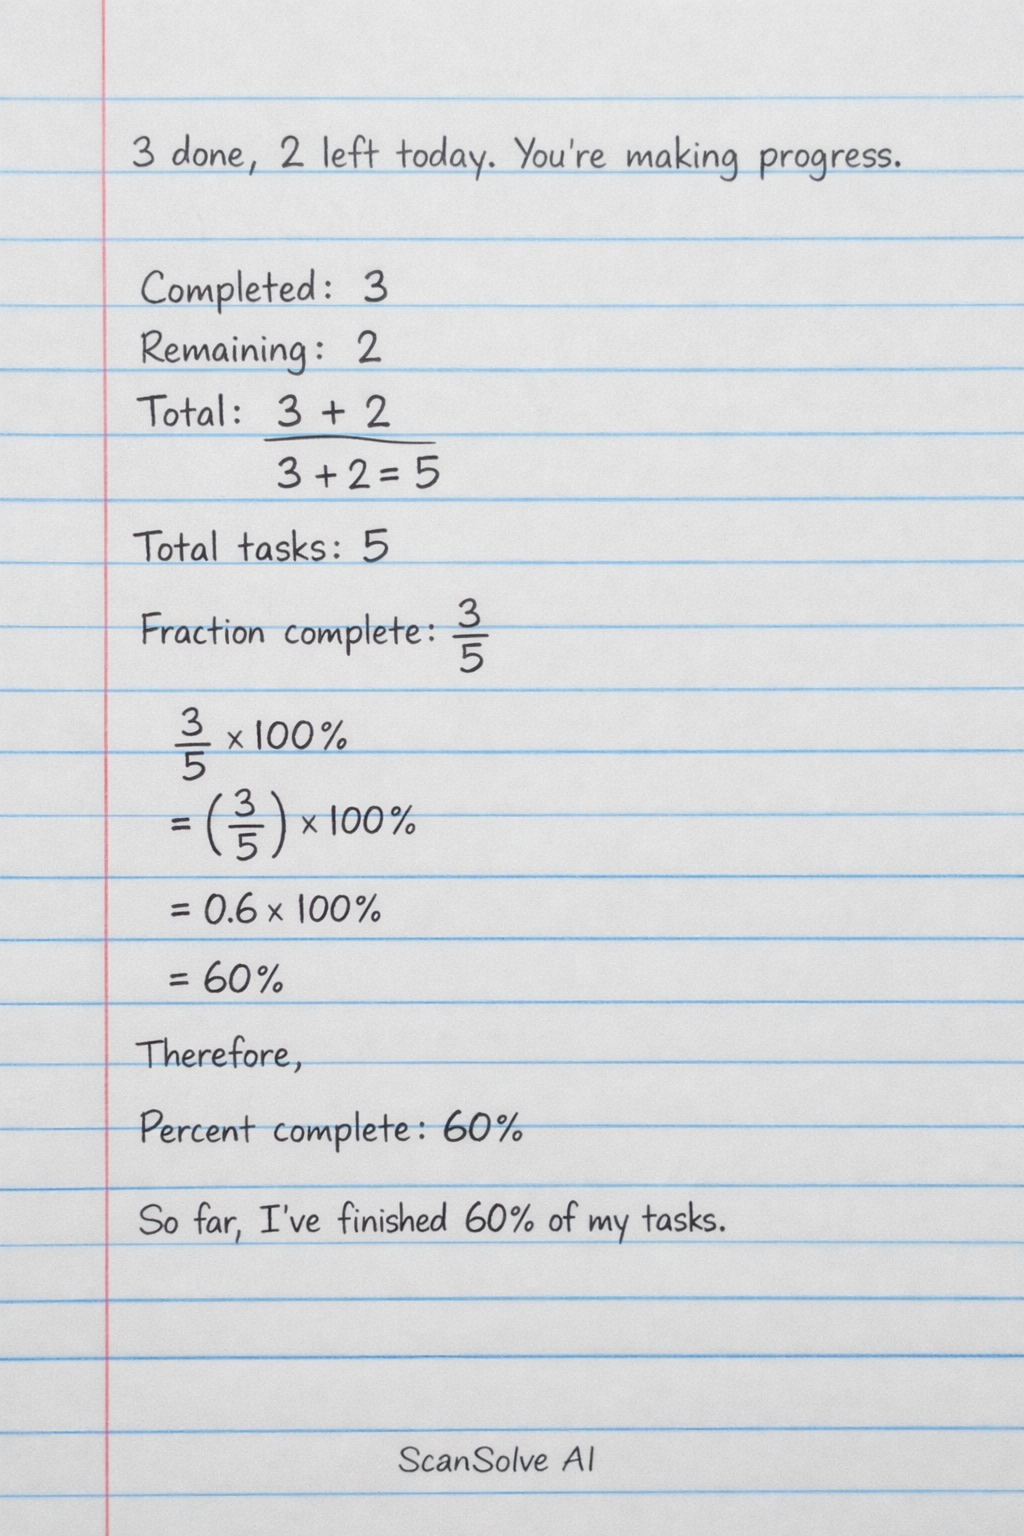 3 done, 2 left today. You're making progress.
Completed: 3
Remaining: 2
Total: 3 + 2
3 + 2 = 5
Total tasks: 5
Fraction complete: 3/5
3/5 × 100%
= (3/5) × 100%
= 0.6 × 100%
= 60%
Therefore,
Percent complete: 60%
So far, I've finished 60% of my tasks.
ScanSolve AI